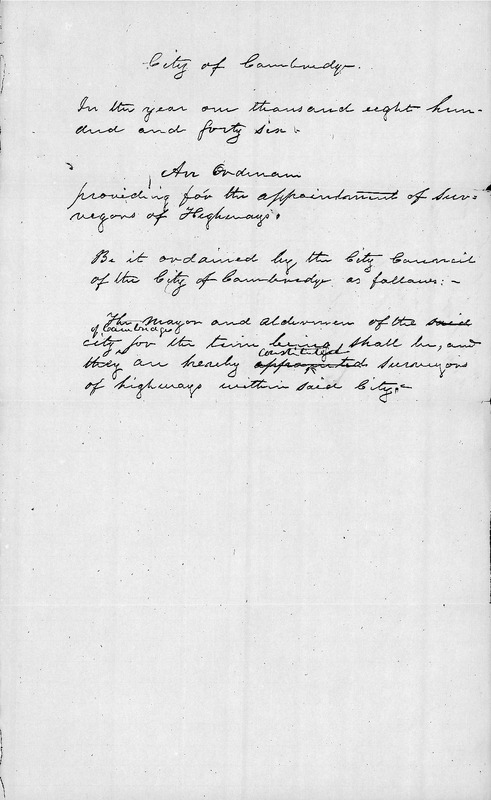 City of Cambridge.
In the year one thousand eight hun-
dred and forty six.
An Ordinance
providing for the appointment of Sur-
veyors of Highways.
Be it ordained by the City Council
of the City of Cambridge as follows: -
The Mayor and Aldermen of the said
of Cambridge
city for the time being shall be, and
constituted
they are hereby appointed surveyors
of highways within said City. -